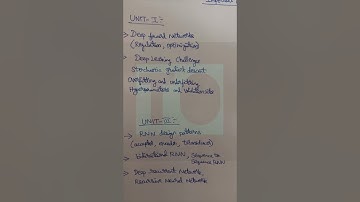 UNIT-I:-
→ Deep forward Networks
(Regulation, optimization)
→ Deep Learning Challenges
Stochastic gradient descent
Overfitting and underfitting
Hyperparameters and Validation sets
UNIT-II:-
→ RNN design patterns
(acceptor, encoder, Transducer)
→ bidirectional RNN, Sequence to
Sequence RNN
→ Deep recurrent Networks
Recursive Neural Network